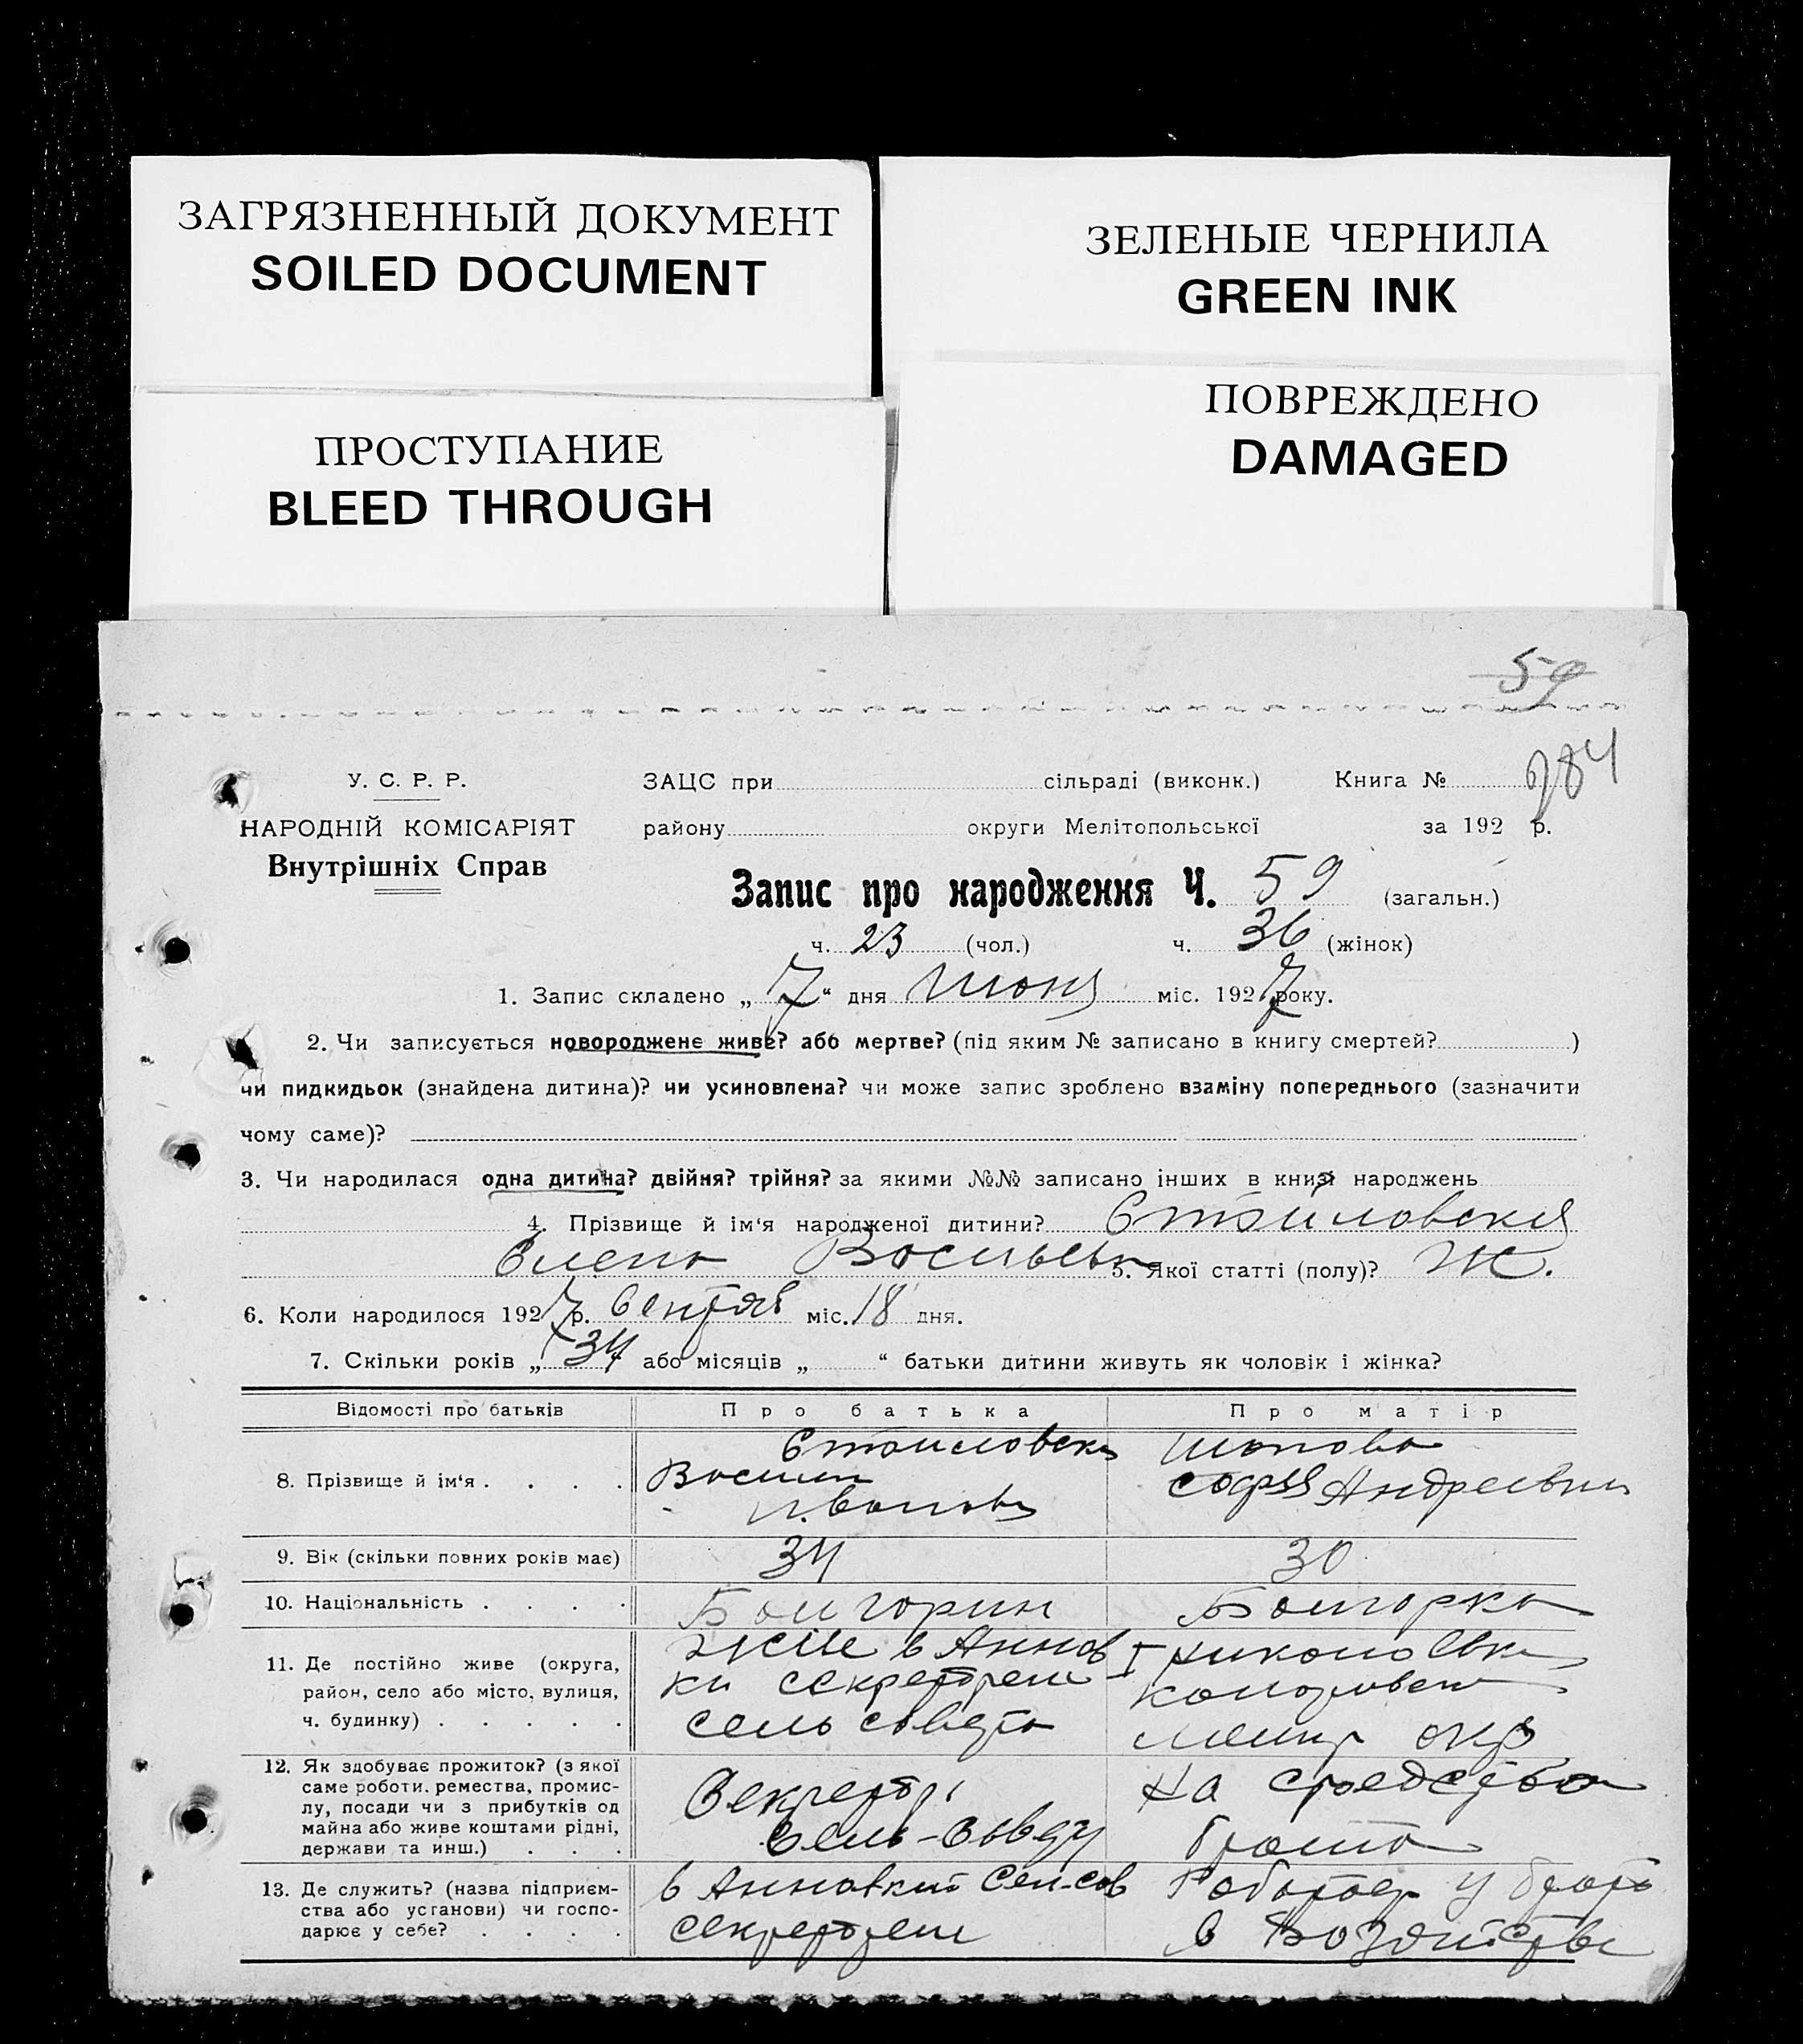 ЗАГРЯЗНЕННЫЙ ДОКУМЕНТ
SOILED DOCUMENT
ЗЕЛЕНЫЕ ЧЕРНИЛА
GREEN INK
ПРОСТУПАНИЕ
BLEED THROUGH
ПОВРЕЖДЕНО
DAMAGED
59
У. С. Р. Р.
НАРОДНІЙ КОМІСАРІЯТ
Внутрішніх Справ
ЗАЦС при сільраді (виконк.) Книга №
району округи Мелітопольської за 192 р.
Запис про народження Ч. 59 (загальн.)
ч. 23 (чол.) ч. 36 (жінок)
1. Запис складено „ 7 “ дня июня міс. 1927 року.
2. Чи записується новороджене живе? або мертве? (під яким № записано в книгу смертей? )
чи пидкидьок (знайдена дитина)? чи усиновлена? чи може запис зроблено взаміну попереднього (зазначити
чому саме)?
3. Чи народилася одна дитина? двійня? трійня? за якими №№ записано інших в книзі народжень
4. Прізвище й ім‘я народженої дитини? Стоиловская
Елена 5. Якої статті (полу)? Ж.
6. Коли народилося 1927 р. міс. 18 дня.
7. Скільки років „ 34 або місяців „ “ батьки дитини живуть як чоловік і жінка?
Відомості про батьків Про батька Про матір
8. Прізвище й ім‘я . . . . Софья Андреевна
9. Вік (скільки повних років має) 34 30
10. Національність . . . . Болгарин Болгарка
11. Де постійно живе (округа,
район, село або місто, вулиця,
ч. будинку) . . . . .
в Аннов
ки секретарем
сель совета
12. Як здобуває прожиток? (з якої
саме роботи, ремества, промис-
лу, посади чи з прибутків од
майна або живе коштами рідні,
держави та инш.) . . .
Секретарь
на средства
брата
13. Де служить? (назва підприєм-
ства або установи) чи госпо-
дарює у себе? . . . .
секретарем